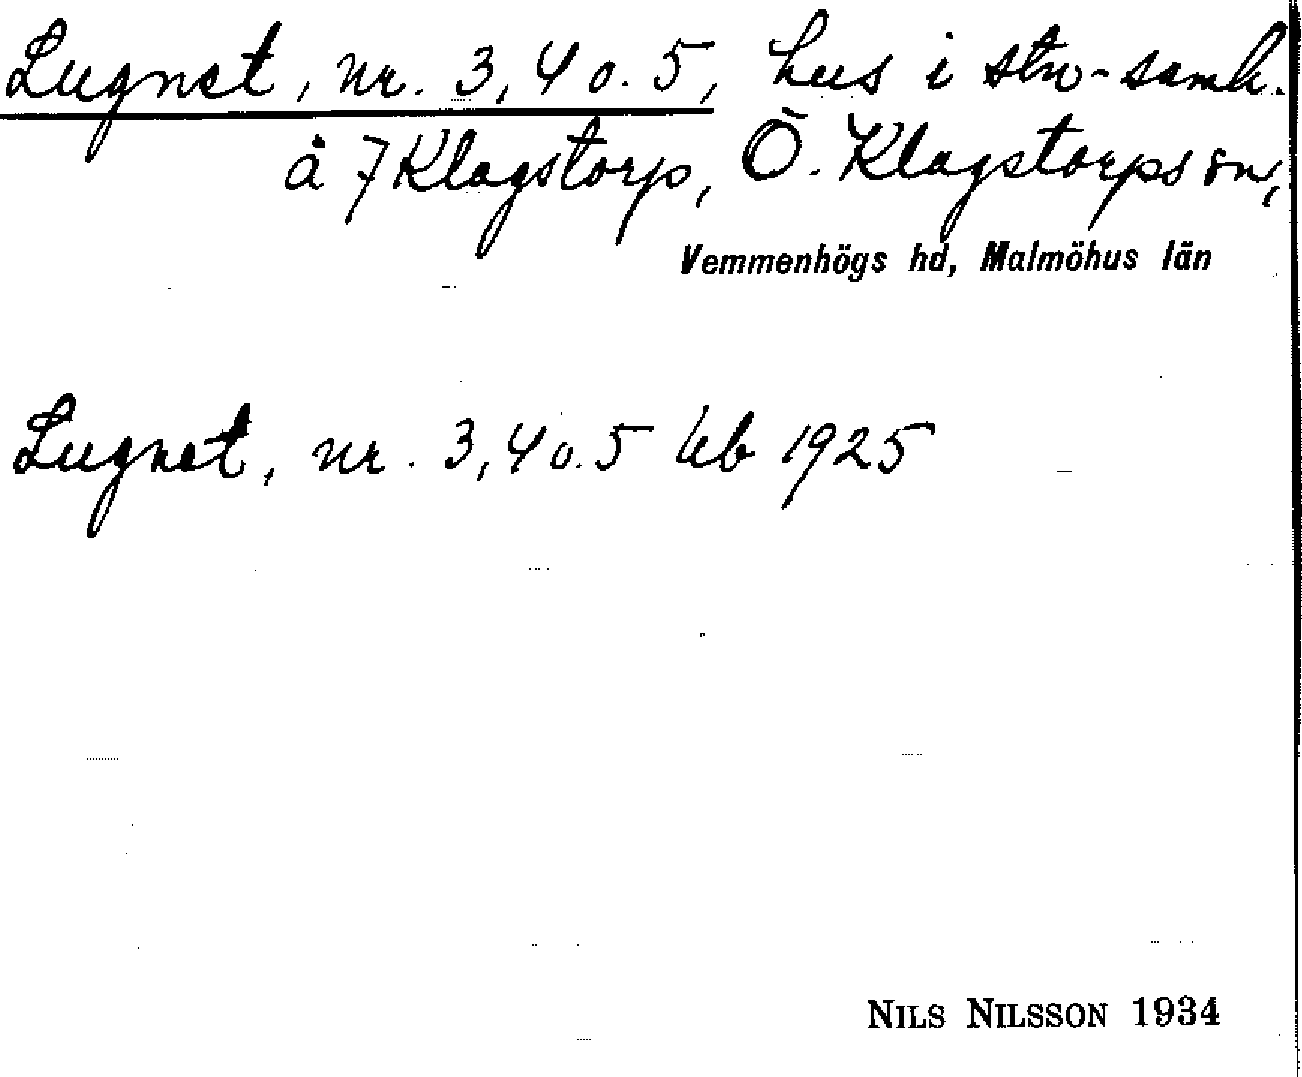 Lugnet, nr. 3, 4 o. 5, hus i stn-samh.
å 7 Klagstorp, Ö. Klagstorps sn,
Vemmenhögs hd, Malmöhus län
Lugnet, nr. 3, 4 o. 5 kb 1925
NILS NILSSON 1934